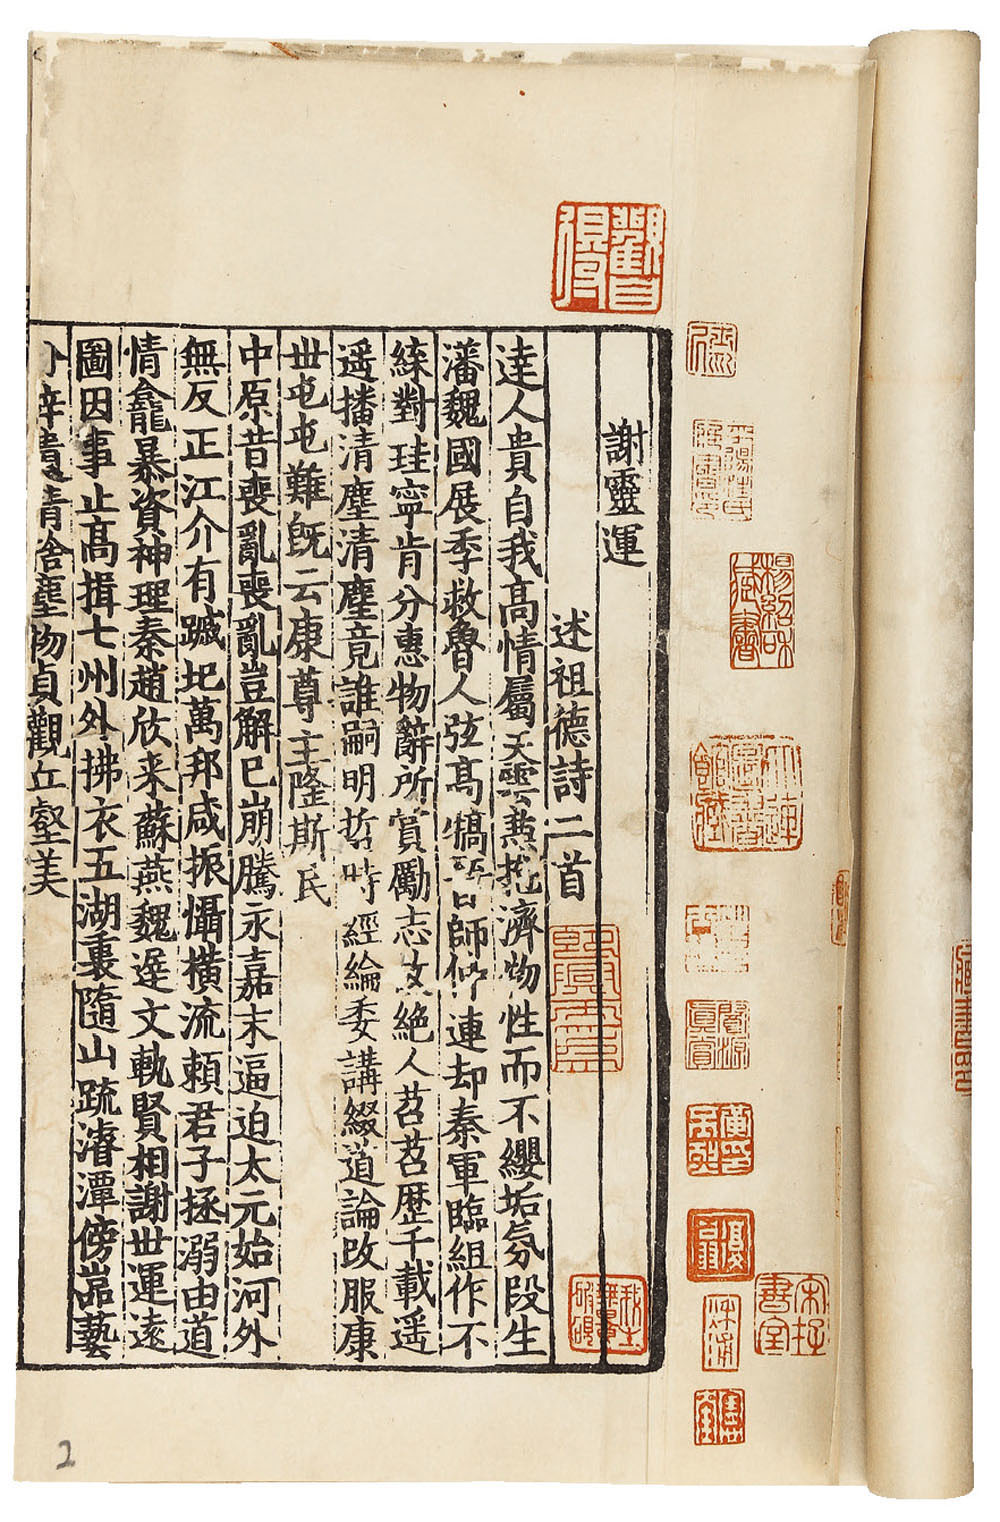 觀自得
謝靈運
述祖德詩二首
達人貴自我高情屬天雲兼抱濟物性而不纓垢氛段生
潘魏國展季救魯人弦高犒晉師仲連却秦軍臨組作不
緤對珪寧肯分惠物辭所賞勵志故絶人苕苕歷千載遥
遥播清塵清塵竟誰嗣明哲時經綸委講綴道論改服康
世屯屯難旣云康尊主隆斯民
中原昔喪亂喪亂豈解已崩騰永嘉末逼迫太元始河外
無反正江介有蹙圮萬邦咸振懾橫流賴君子拯溺由道
情龕暴資神理秦趙欣来蘇燕魏遲文軌賢相謝世運遠
圖因事止高揖七州外拂衣五湖裏隨山疏濬潭傍嵓藝
梓遺情捨塵物貞觀丘壑美
楊紹和藏書
宋存書室
2